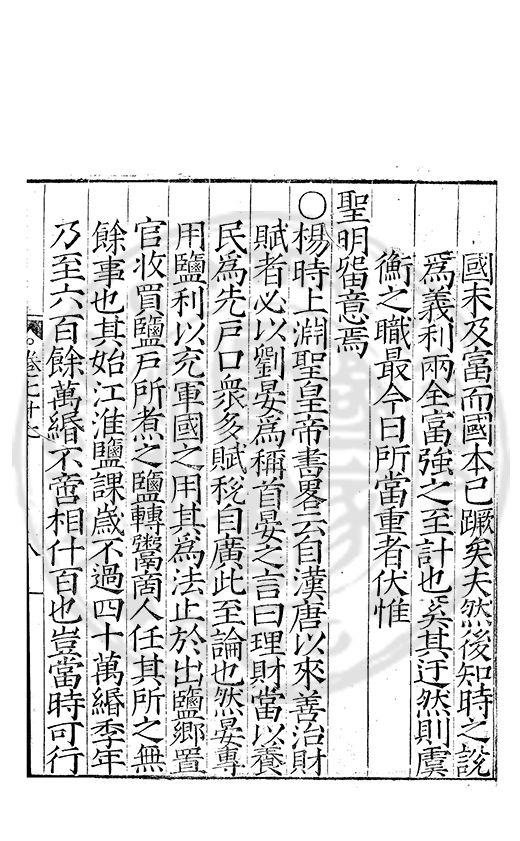 國未及富而國本已蹶矣夫然後知時之說
爲義利兩全富強之至計也奚其迂然則虞
衡之職最今日所當重者伏惟
聖明留意焉
○楊時上淵聖皇帝書畧云自漢唐以來善治財
賦者必以劉晏爲稱首晏之言曰理財當以養
民爲先戶口衆多賦稅自廣此至論也然晏專
用鹽利以充軍國之用其爲法止於出鹽鄉置
官收買鹽戶所煮之鹽轉鬻商人任其所之無
餘事也其始江淮鹽課歲不過四十萬緡季年
乃至六百餘萬緡不啻相什百也豈當時可行